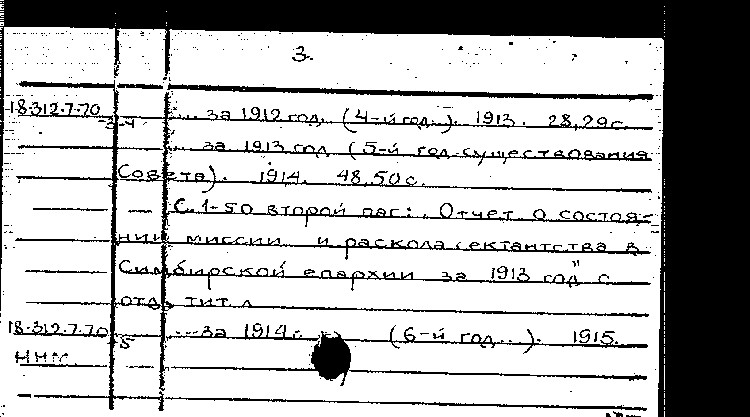 3.
18.312.7.70 ... за 1912 год. (4-й год...). 1913. 28,29 с.
3-4
... за 1913 год (5-й год существования
Совета). 1914. 48,50 с.
С. 1-50 второй паг.: "Отчет о состоя-
нии миссии и раскола сектантства в
Симбирской епархии за 1913 год" с
отд. тит. л
18.312.7.70 ...за 1914 г. (6-й год...). 1915.
5
ННМ